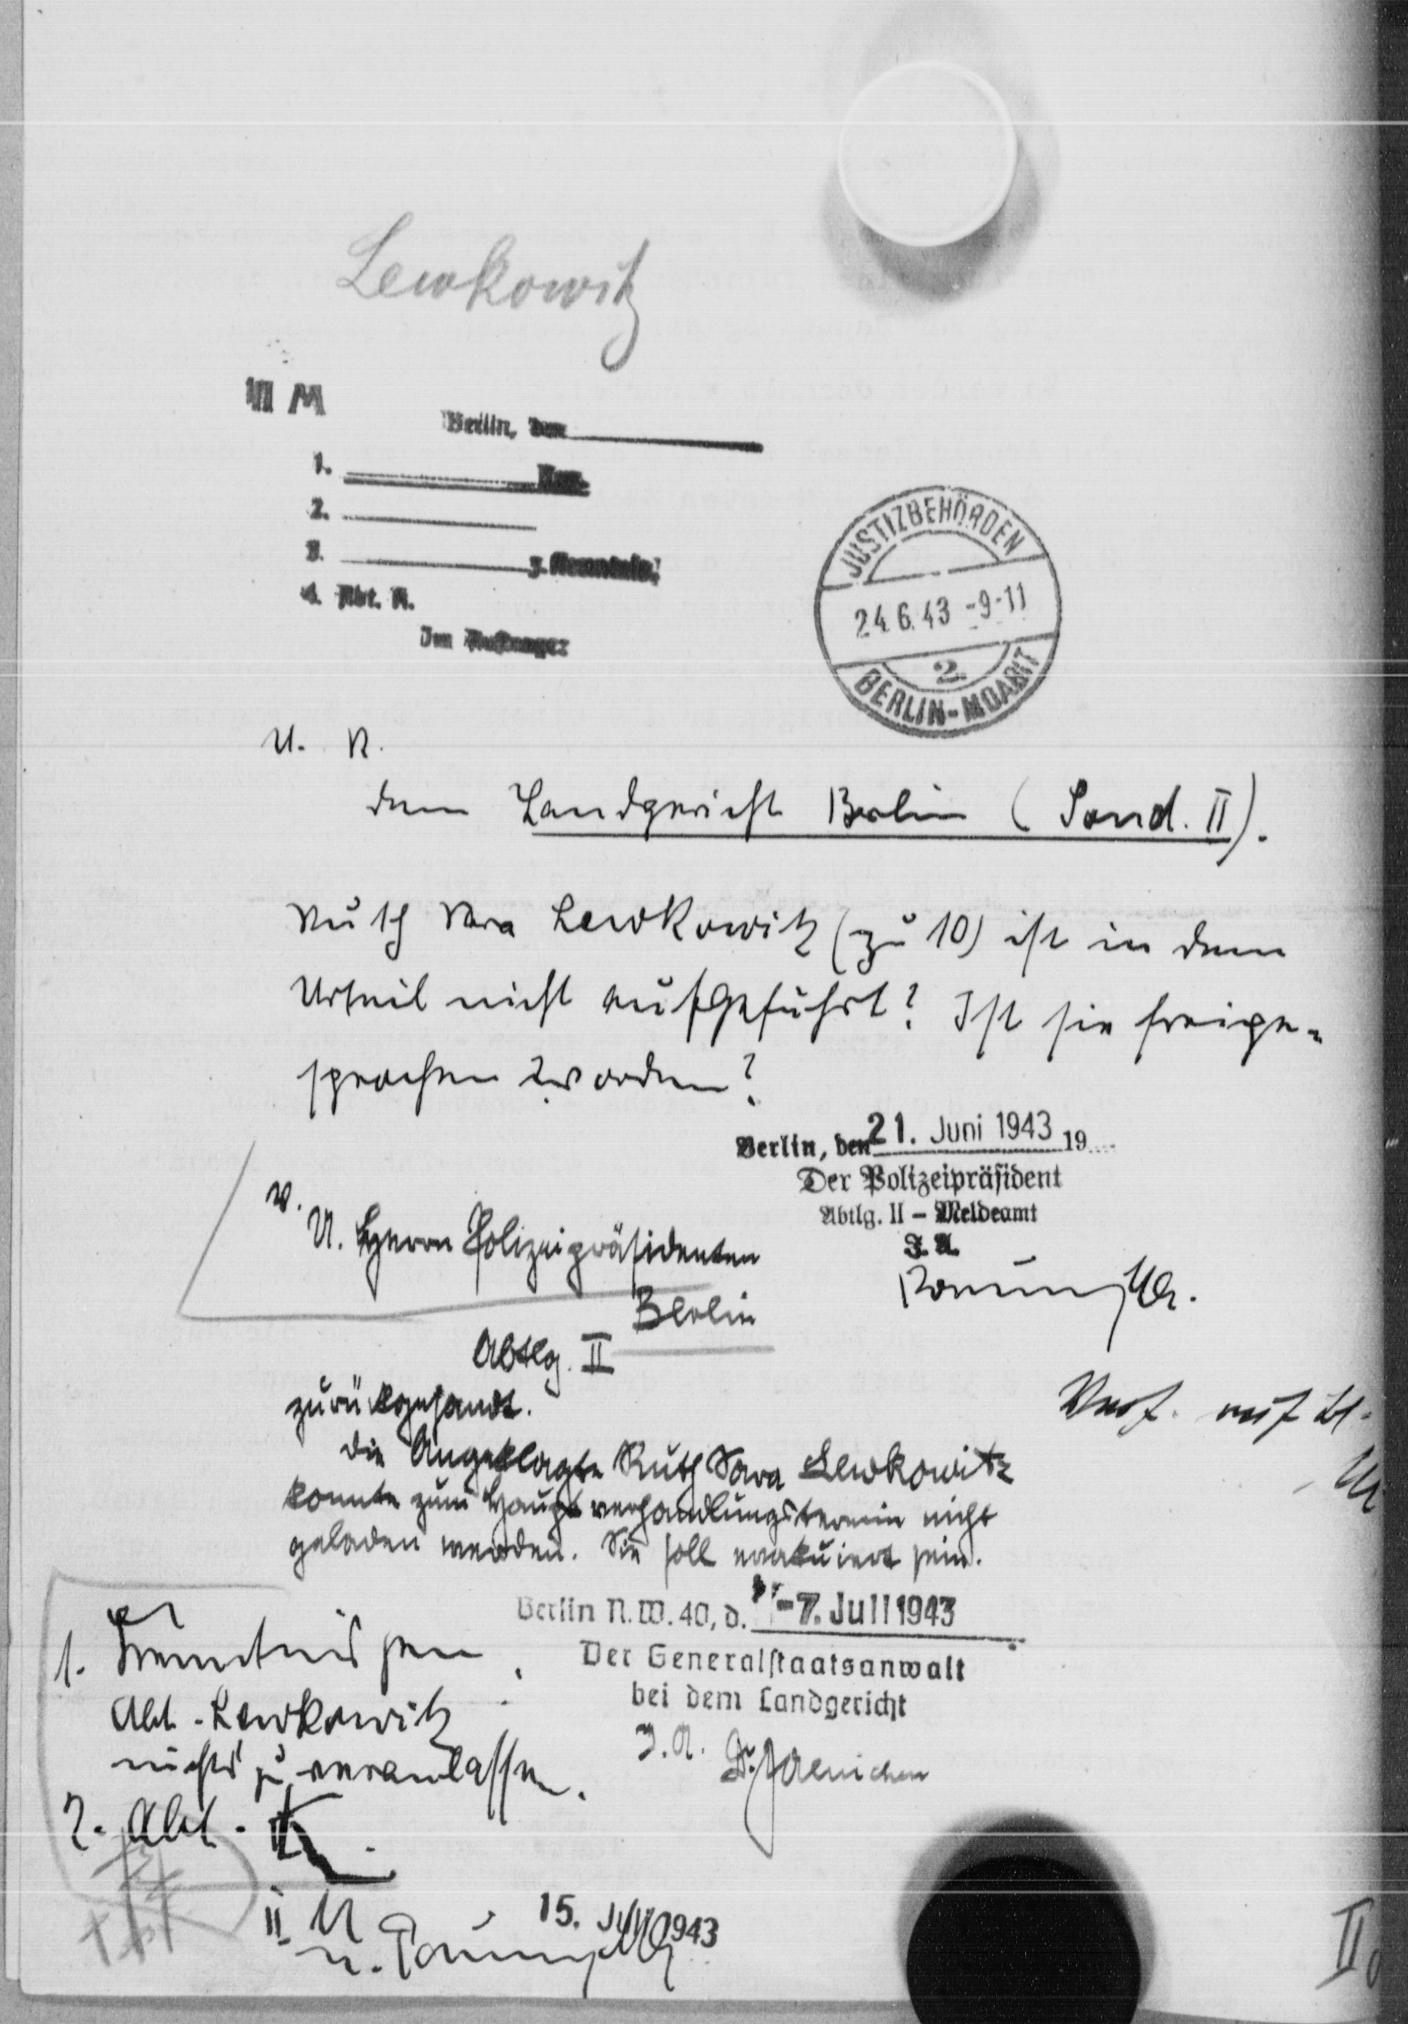 Lewkowitz
II M
Berlin, den
1. Reg.
2.
3. z. Kenntnis.
4. Abt. K.
Im Auftrage:
JUSTIZBEHÖRDEN
24.6.43 -9-11
2.
BERLIN-MOABIT
U. R.
dem Landgericht Berlin (Sond. II).
Ruth Sara Lewkowitz (zu 10) ist in dem
Urteil nicht aufgeführt? Ist sie freige-
sprochen worden?
Berlin, den 21. Juni 1943 19
Der Polizeipräsident
Abtlg. II – Meldeamt
I. A.
W.
U. Herrn Polizeipräsidenten
Berlin
Abtlg. II
zurückgesandt.
Die Angeklagte Ruth Sara Lewkowitz
konnte zum Hauptverhandlungstermin nicht
geladen werden. Sie soll evakuiert sein.
Berlin N.W. 40, d. -7. Juli 1943
Der Generalstaatsanwalt
bei dem Landgericht
J. A. Dr. Jaenichen
1. Kenntnis gen.
Abt. Lewkowitz
nichts zu veranlassen.
2. Abt. K
II M
15. Juli 1943
II